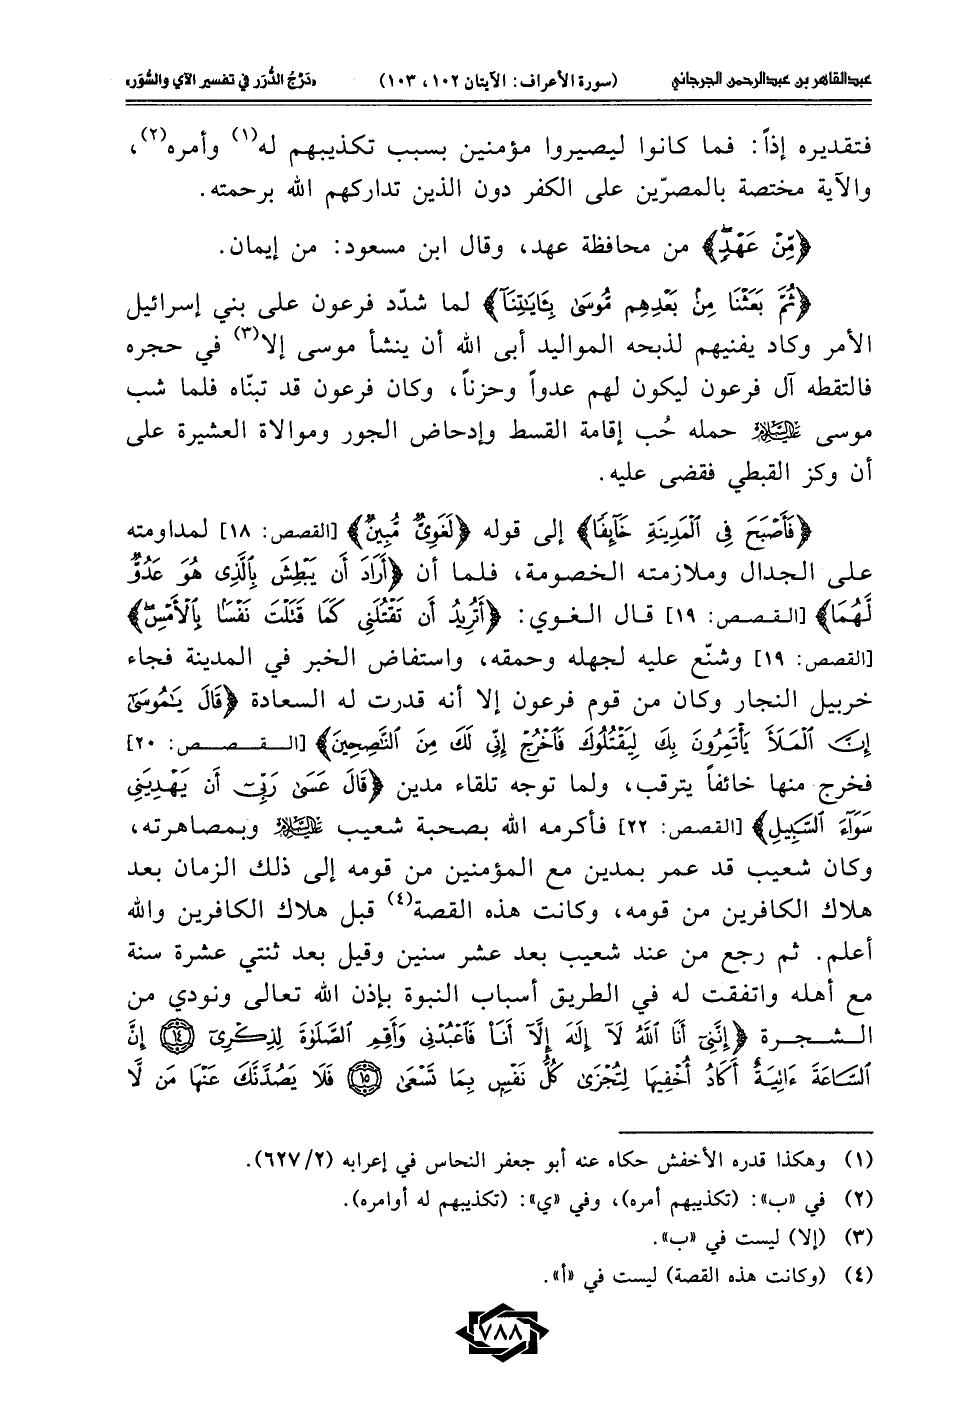 عبدالقاهر بن عبدالرحمن الجرجاني (سورة الأعراف: الآيتان ١٠٢، ١٠٣) «دَرْجُ الدُّرَر في تفسير الآي والسُّوَر»
فتقديره إذاً: فما كانوا ليصيروا مؤمنين بسبب تكذيبهم له(١) وأمره(٢)،
والآية مختصة بالمصرّين على الكفر دون الذين تداركهم الله برحمته.
﴿مِّنْ عَهْدٍ﴾ من محافظة عهد، وقال ابن مسعود: من إيمان.
﴿ثُمَّ بَعَثْنَا مِنۢ بَعْدِهِم مُّوسَىٰ بِـَٔايَـٰتِنَآ﴾ لما شدّد فرعون على بني إسرائيل
الأمر وكاد يفنيهم لذبحه المواليد أبى الله أن ينشأ موسى إلا(٣) في حجره
فالتقطه آل فرعون ليكون لهم عدواً وحزناً، وكان فرعون قد تبنّاه فلما شب
موسى عليه السلام حمله حُب إقامة القسط وإدحاض الجور وموالاة العشيرة على
أن وكز القبطي فقضى عليه.
﴿فَأَصْبَحَ فِى ٱلْمَدِينَةِ خَآئِفًا﴾ إلى قوله ﴿لَغَوِىٌّ مُّبِينٌ﴾ [القصص: ١٨] لمداومته
على الجدال وملازمته الخصومة، فلما أن ﴿أَرَادَ أَن يَبْطِشَ بِٱلَّذِى هُوَ عَدُوٌّ
لَّهُمَا﴾ [القصص: ١٩] قال الغوي: ﴿أَتُرِيدُ أَن تَقْتُلَنِى كَمَا قَتَلْتَ نَفْسًۢا بِٱلْأَمْسِ﴾
[القصص: ١٩] وشنّع عليه لجهله وحمقه، واستفاض الخبر في المدينة فجاء
خربيل النجار وكان من قوم فرعون إلا أنه قدرت له السعادة ﴿قَالَ يَـٰمُوسَىٰٓ
إِنَّ ٱلْمَلَأَ يَأْتَمِرُونَ بِكَ لِيَقْتُلُوكَ فَٱخْرُجْ إِنِّى لَكَ مِنَ ٱلنَّـٰصِحِينَ﴾ [القصص: ٢٠]
فخرج منها خائفاً يترقب، ولما توجه تلقاء مدين ﴿قَالَ عَسَىٰ رَبِّىٓ أَن يَهْدِيَنِى
سَوَآءَ ٱلسَّبِيلِ﴾ [القصص: ٢٢] فأكرمه الله بصحبة شعيب عليه السلام وبمصاهرته،
وكان شعيب قد عمر بمدين مع المؤمنين من قومه إلى ذلك الزمان بعد
هلاك الكافرين من قومه، وكانت هذه القصة(٤) قبل هلاك الكافرين والله
أعلم. ثم رجع من عند شعيب بعد عشر سنين وقيل بعد ثنتي عشرة سنة
مع أهله واتفقت له في الطريق أسباب النبوة بإذن الله تعالى ونودي من
الشجرة ﴿إِنَّنِىٓ أَنَا ٱللَّهُ لَآ إِلَـٰهَ إِلَّآ أَنَا۠ فَٱعْبُدْنِى وَأَقِمِ ٱلصَّلَوٰةَ لِذِكْرِىٓ ١٤ إِنَّ
ٱلسَّاعَةَ ءَاتِيَةٌ أَكَادُ أُخْفِيهَا لِتُجْزَىٰ كُلُّ نَفْسٍۭ بِمَا تَسْعَىٰ ١٥ فَلَا يَصُدَّنَّكَ عَنْهَا مَن لَّا
(١) وهكذا قدره الأخفش حكاه عنه أبو جعفر النحاس في إعرابه (٦٢٧/٢).
(٢) في «ب»: (تكذيبهم أمره)، وفي «ي»: (تكذيبهم له أوامره).
(٣) (إلا) ليست في «ب».
(٤) (وكانت هذه القصة) ليست في «أ».
٧٨٨